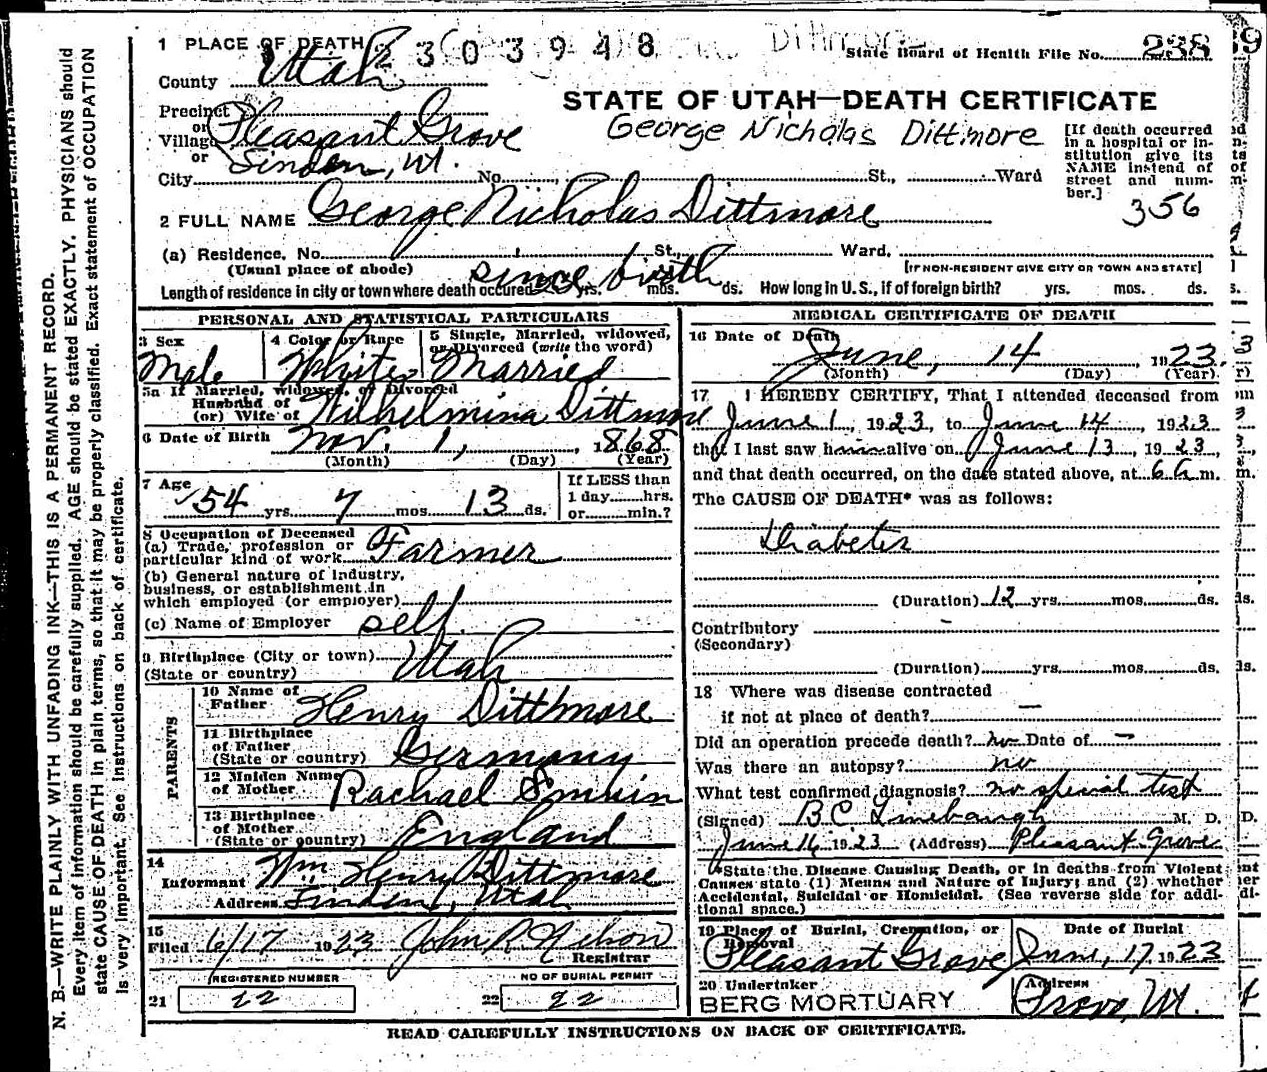 1 PLACE OF DEATH 2303948 Dittmore State Board of Health File No. 238
County Utah
STATE OF UTAH—DEATH CERTIFICATE
Precinct
or
Village Pleasant Grove
or Linden, Ut.
George Nicholas Dittmore
[If death occurred
in a hospital or in-
stitution give its
NAME instead of
street and num-
ber.]
356
City No. St., Ward
2 FULL NAME George Nicholas Dittmore
(a) Residence, No. St. Ward.
(Usual place of abode) [IF NON-RESIDENT GIVE CITY OR TOWN AND STATE]
Length of residence in city or town where death occured since birth yrs. mos. ds. How long in U. S., if of foreign birth? yrs. mos. ds.
PERSONAL AND STATISTICAL PARTICULARS
3 Sex Male
4 Color or Race White
5 Single, Married, widowed,
or Divorced (write the word)
Married
5a If Married, widowed, or Divorced
Husband of
(or) Wife of Wilhelmina Dittmore
6 Date of Birth Nov. 1, 1868
(Month) (Day) (Year)
7 Age 54 yrs. 7 mos. 13 ds.
If LESS than
1 day hrs.
or min.?
8 Occupation of Deceased
(a) Trade, profession or
particular kind of work Farmer
(b) General nature of industry,
business, or establishment in
which employed (or employer)
(c) Name of Employer self
9 Birthplace (City or town)
(State or country) Utah
PARENTS
10 Name of
Father Henry Dittmore
11 Birthplace
of Father
(State or country) Germany
12 Maiden Name
of Mother Rachael
13 Birthplace
of Mother
(State or country) England
14
Informant Wm. Henry Dittmore
Address Linden, Utah
15
Filed 6/17 1923 John R Nelson
Registrar
REGISTERED NUMBER
21 22
NO OF BURIAL PERMIT
22 22
MEDICAL CERTIFICATE OF DEATH
16 Date of Death
June, 14 1923.
(Month) (Day) (Year)
17 I HEREBY CERTIFY, That I attended deceased from
June 1, 1923, to June 14, 1923
that I last saw him alive on June 13, 1923,
and that death occurred, on the date stated above, at 6 a m.
The CAUSE OF DEATH* was as follows:
Diabetes
(Duration) 12 yrs. mos. ds.
Contributory —
(Secondary)
(Duration) yrs. mos. ds.
18 Where was disease contracted
if not at place of death? —
Did an operation precede death? no Date of —
Was there an autopsy? no
What test confirmed diagnosis? no special test
(Signed) B C Linebaugh M. D.
June 16 1923 (Address) Pleasant Grove
*State the Disease Causing Death, or in deaths from Violent
Causes state (1) Means and Nature of Injury; and (2) whether
Accidental, Suicidal or Homicidal. (See reverse side for addi-
tional space.)
19 Place of Burial, Cremation, or
Removal
Pleasant Grove
Date of Burial
June, 17, 1923
20 Undertaker
BERG MORTUARY
Address
Provo, Ut.
READ CAREFULLY INSTRUCTIONS ON BACK OF CERTIFICATE.
N. B.—WRITE PLAINLY WITH UNFADING INK—THIS IS A PERMANENT RECORD.
Every item of information should be carefully supplied. AGE should be stated EXACTLY. PHYSICIANS should
state CAUSE OF DEATH in plain terms, so that it may be properly classified. Exact statement of OCCUPATION
is very important. See instructions on back of certificate.